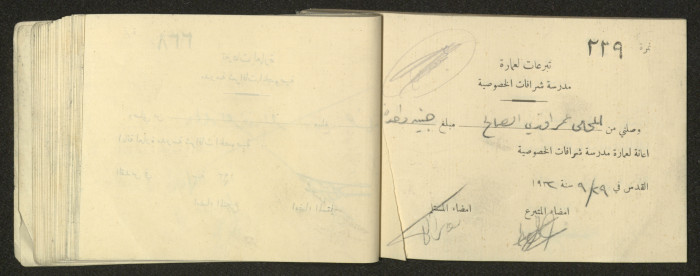 نمرة ٢٢٩
تبرعات لعمارة
مدرسة شرافات الخصوصية
وصلني من المحامي عمر افندي الصالح مبلغ جنيه واحد
اعانة لعمارة مدرسة شرافات الخصوصية
القدس في ٢٩/٩ سنة ١٩٣٢
امضاء المتبرع
امضاء المستلم